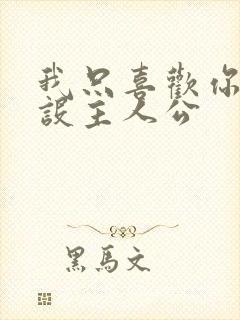 我只喜歡你
設主人公
黑馬文